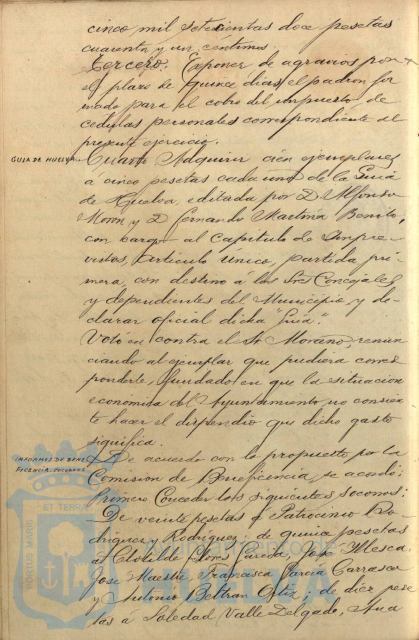 cinco mil setecientas doce pesetas
cuarenta y un céntimos
Tercero. Exponer de agravios por
el plazo de quince dias el padron for
mado para el cobro del impuesto de
cedulas personales correspondiente al
presente ejercicio.
GUIA DE HUELVA
Cuarto Adquirir cien ejemplares
á cinco pesetas cada uno de la Guia
de Huelva, editada por D. Alfonso
Moron y D. Fernando Martina Benito,
con cargo al Capitulo de Impre-
vistos, Articulo Unico, partida pri
mera, con destino á los Sres Concejales
y dependientes del Municipio y de-
clarar oficial dicha "Guia".
Votó en contra el Sr Moraño, renun
ciando al ejemplar que pudiera corres
ponderle, fundado en que la situacion
economica del Ayuntamiento no consien
te hacer el dispendio que dicho gasto
significa.
INFORMES DE BENE
FICENCIA. SOCORROS
De acuerdo con lo propuesto por la
Comision de Beneficencia, se acordó:
Primero Conceder los siguientes socorros:
De veinte pesetas á Patrocinio Ro
driguez y Rodriguez; de quince pesetas
á Clotilde Flores Conde, José Illesca,
José Maestre, Francisca Garcia Carrasco
y Antonio Beltran Ortiz; de diez pese
tas á Soledad Valle Delgado, Ana
PORTUS MARIS
ET TERRAE